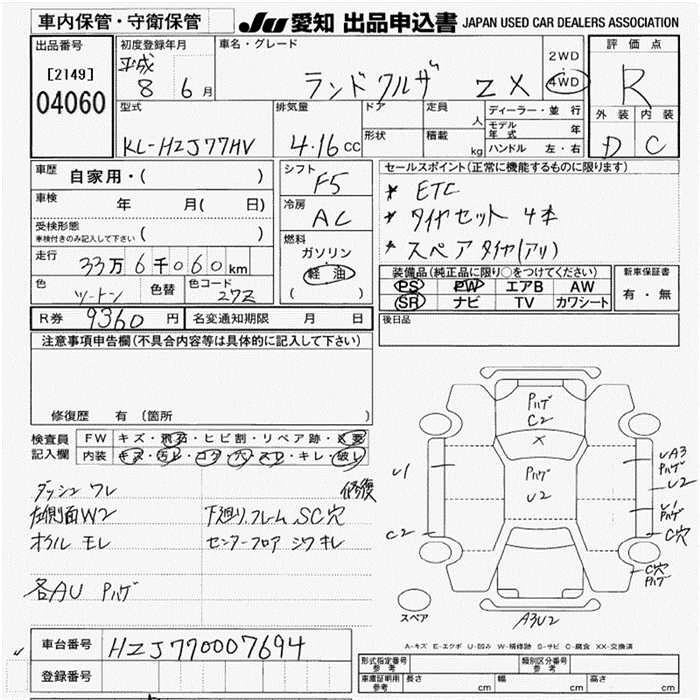 車内保管・守衛保管
JU 愛知 出品申込書 JAPAN USED CAR DEALERS ASSOCIATION
出品番号
[2149]
04060
初度登録年月
平成
8 6 月
車名・グレード
ランドクルーザ ZX
2WD
・
4WD
評価点
R
外装 内装
D C
型式
KL-HZJ77HV
排気量
4.16 cc
ドア
形状
定員
人
積載
kg
ディーラー・並行
モデル年式 年
ハンドル 左・右
車歴 自家用・( )
車検 年 月( 日)
受検形態
※検付きのみ記入して下さい ( )
走行 33万6千060km
色 ツートン 色替 色コード 27Z
シフト
F5
冷房
AC
燃料
ガソリン
軽油
( )
セールスポイント(正常に機能するものに限ります)
* ETC
* タイヤセット 4本
* スペアタイヤ(アリ)
装備品(純正品に限り○をつけてください)
PS PW エアB AW
SR ナビ TV カワシート
新車保証書
有・無
R券 9360 円 名変通知期限 月 日
後日品
注意事項申告欄(不具合内容等は具体的に記入して下さい)
修復歴 有 (箇所 )
検査員記入欄
FW キズ・飛石・ヒビ割・リペア跡・X要
内装 キズ・汚レ・コゲ・穴・スレ・キレ・破レ
ダッシュ ワレ 修復
左側面W2 下廻り.フレーム SC穴
オイル モレ センターフロア シワ キレ
各AU Pハゲ
Pハゲ
C2
X
Pハゲ
U2
U1
C2
UA3
Pハゲ
U2
U1
Pハゲ
C穴
C穴
Pハゲ
スペア
A3U2
A-キズ E-エクボ U-凹み W-補修跡 S-サビ C-腐食 XX-交換済
車台番号 HZJ770007694
登録番号
型式指定番号 参考
類別区分番号 参考
車庫証明用 参考 長さ cm 幅 cm 高さ cm